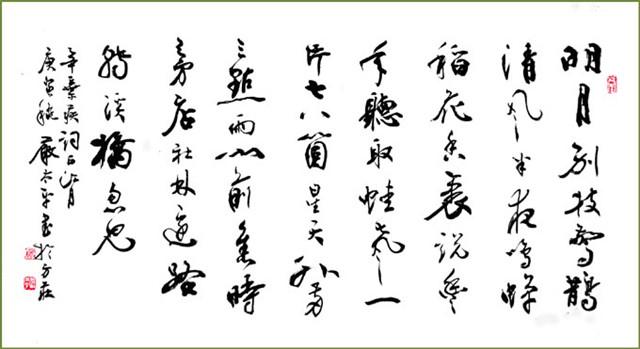 明月別枝驚鵲
清風半夜鳴蟬
稻花香裏說豐
年聽取蛙聲一
片七八箇星天外兩
三點雨山前舊時
茅店社林邊路
轉溪橋忽見
辛棄疾詞西江月
庚寅秋嚴太平書於方莊